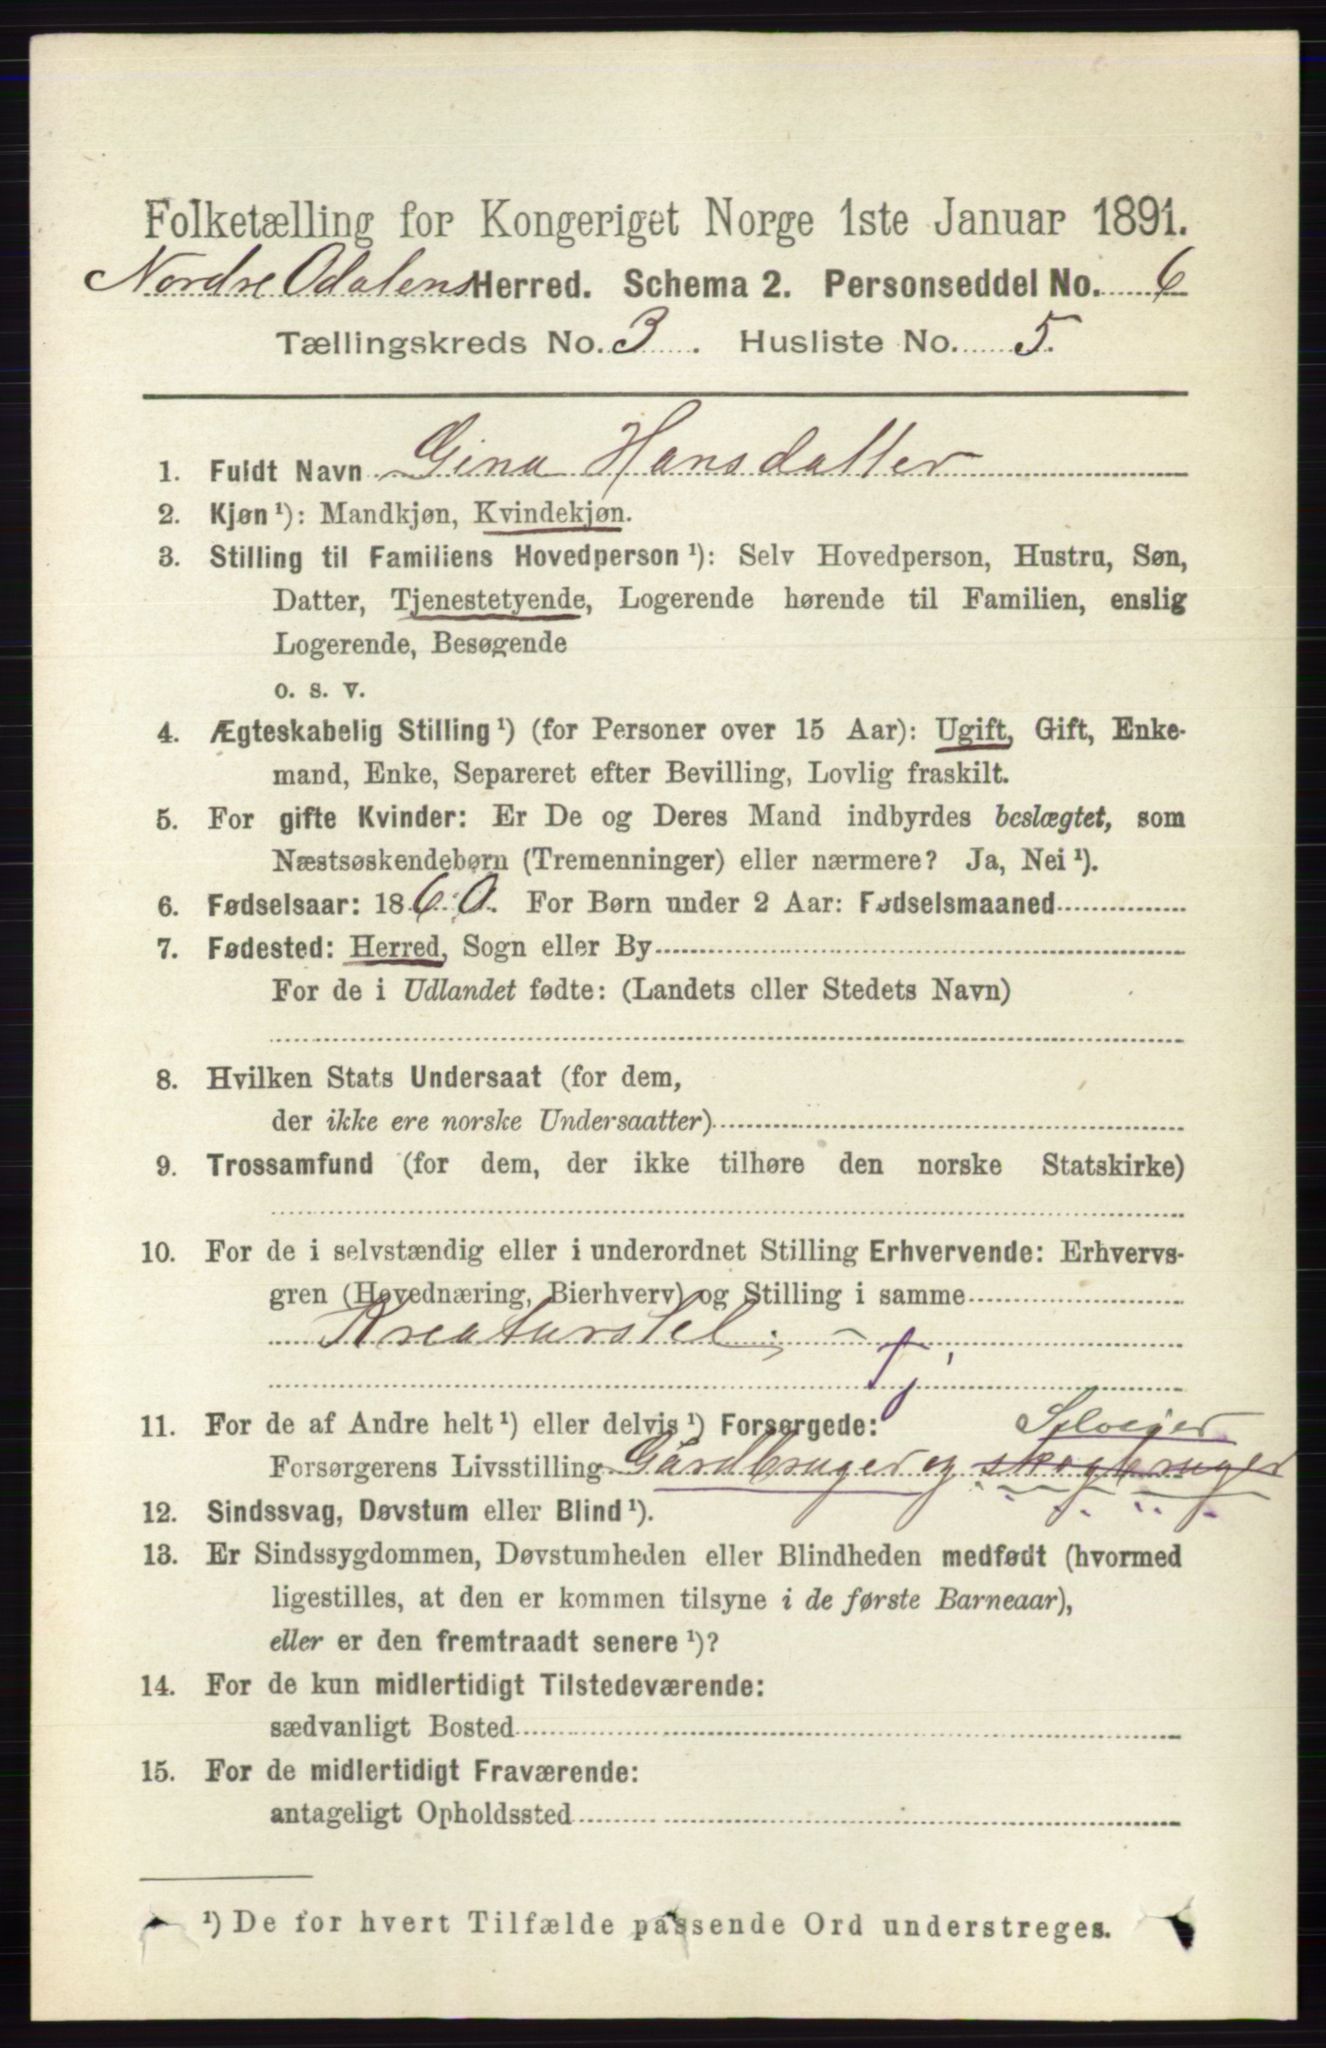 Folketælling for Kongeriget Norge 1ste Januar 1891.
Nordre Odalens Herred. Schema 2. Personseddel No. 6
Tællingskreds No. 3. Husliste No. 5.
1. Fuldt Navn Gina Hansdatter
2. Kjøn ¹): Mandkjøn, Kvindekjøn.
3. Stilling til Familiens Hovedperson ¹): Selv Hovedperson, Hustru, Søn,
Datter, Tjenestetyende, Logerende hørende til Familien, enslig
Logerende, Besøgende
o. s. v.
4. Ægteskabelig Stilling ¹) (for Personer over 15 Aar): Ugift, Gift, Enke-
mand, Enke, Separeret efter Bevilling, Lovlig fraskilt.
5. For gifte Kvinder: Er De og Deres Mand indbyrdes beslægtet, som
Næstsøskendebørn (Tremenninger) eller nærmere? Ja, Nei ¹).
6. Fødselsaar: 1860. For Børn under 2 Aar: Fødselsmaaned
7. Fødested: Herred, Sogn eller By
For de i Udlandet fødte: (Landets eller Stedets Navn)
8. Hvilken Stats Undersaat (for dem,
der ikke ere norske Undersaatter)
9. Trossamfund (for dem, der ikke tilhøre den norske Statskirke)
10. For de i selvstændig eller i underordnet Stilling Erhvervende: Erhvervs-
gren (Hovednæring, Bierhverv) og Stilling i samme
Kreaturstel; -
Tj
11. For de af Andre helt ¹) eller delvis ¹) Forsørgede: Selveier
Forsørgerens Livsstilling Gårdbruger og skogbruger
12. Sindssvag, Døvstum eller Blind ¹).
13. Er Sindssygdommen, Døvstumheden eller Blindheden medfødt (hvormed
ligestilles, at den er kommen tilsyne i de første Barneaar),
eller er den fremtraadt senere ¹)?
14. For de kun midlertidigt Tilstedeværende:
sædvanligt Bosted
15. For de midlertidigt Fraværende:
antageligt Opholdssted
¹) De for hvert Tilfælde passende Ord understreges.